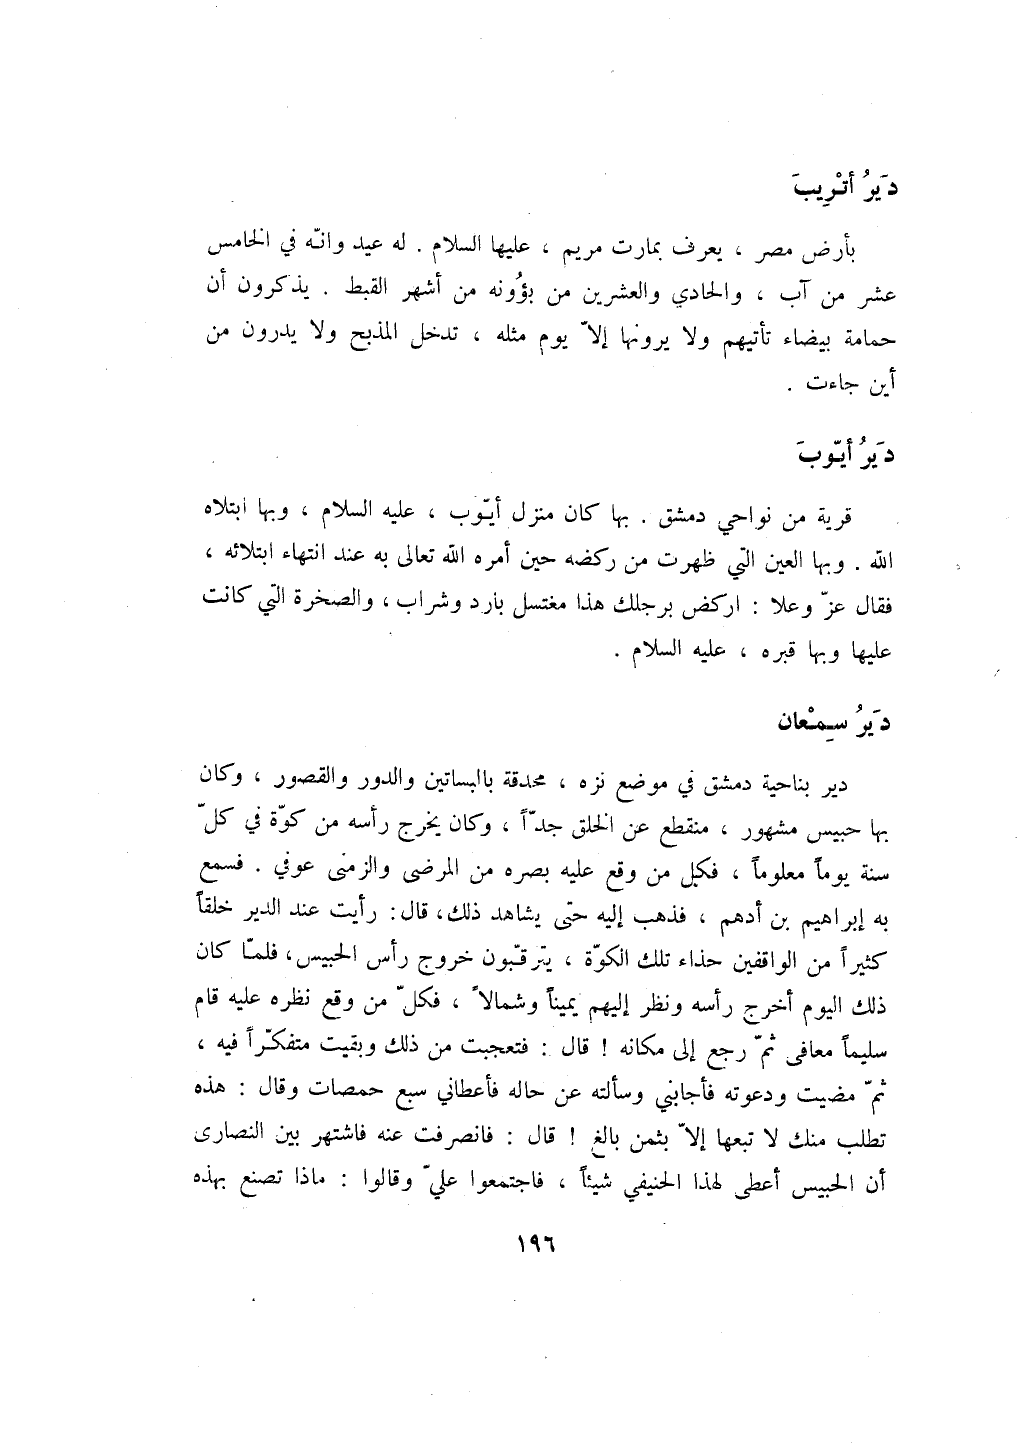 دَيرُ أتْرِيبَ
بأرض مصر ، يعرف بمارت مريم ، عليها السلام . له عيد وانّه في الخامس
عشر من آب ، والحادي والعشرين من بؤُونه من أشهر القبط . يذكرون أن
حمامة بيضاء تأتيهم ولا يرونها إلاّ يوم مثله ، تدخل المذبح ولا يدرون من
أين جاءت .
دَيرُ أيّوبَ
قرية من نواحي دمشق . بها كان منزل أيّوب ، عليه السلام ، وبها ابتلاه
الله . وبها العين التي ظهرت من ركضه حين أمره الله تعالى به عند انتهاء ابتلائه ،
فقال عزّ وعلا : اركض برجلك هذا مغتسل بارد وشراب ، والصخرة التي كانت
عليها وبها قبره ، عليه السلام .
دَيرُ سِمْعان
دير بناحية دمشق في موضع نزه ، محدقة بالبساتين والدور والقصور ، وكان
بها حبيس مشهور ، منقطع عن الخلق جدّاً ، وكان يخرج رأسه من كوّة في كلّ
سنة يوماً معلوماً ، فكل من وقع عليه بصره من المرضى والزمنى عوفي . فسمع
به إبراهيم بن أدهم ، فذهب إليه حتى يشاهد ذلك ، قال : رأيت عند الدير خلقاً
كثيراً من الواقفين حذاء تلك الكوّة ، يترقّبون خروج رأس الحبيس ، فلمّا كان
ذلك اليوم أخرج رأسه ونظر إليهم يميناً وشمالاً ، فكلّ من وقع نظره عليه قام
سليماً معافى ثمّ رجع إلى مكانه ! قال : فتعجبت من ذلك وبقيت متفكّراً فيه ،
ثمّ مضيت ودعوته فأجابني وسألته عن حاله فأعطاني سبع حمصات وقال : هذه
تطلب منك لا تبعها إلاّ بثمن بالغ ! قال : فانصرفت عنه فاشتهر بين النصارى
أن الحبيس أعطى لهذا الحنيفي شيئاً ، فاجتمعوا عليّ وقالوا : ماذا تصنع بهذه
١٩٦